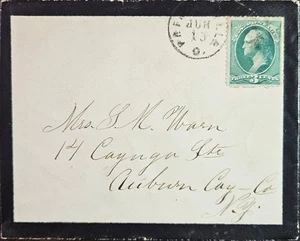 JUN
13
O.
3
Mrs. S. M. Warn
14 Cayuga Ste
Auburn Cay-Co
N.Y.